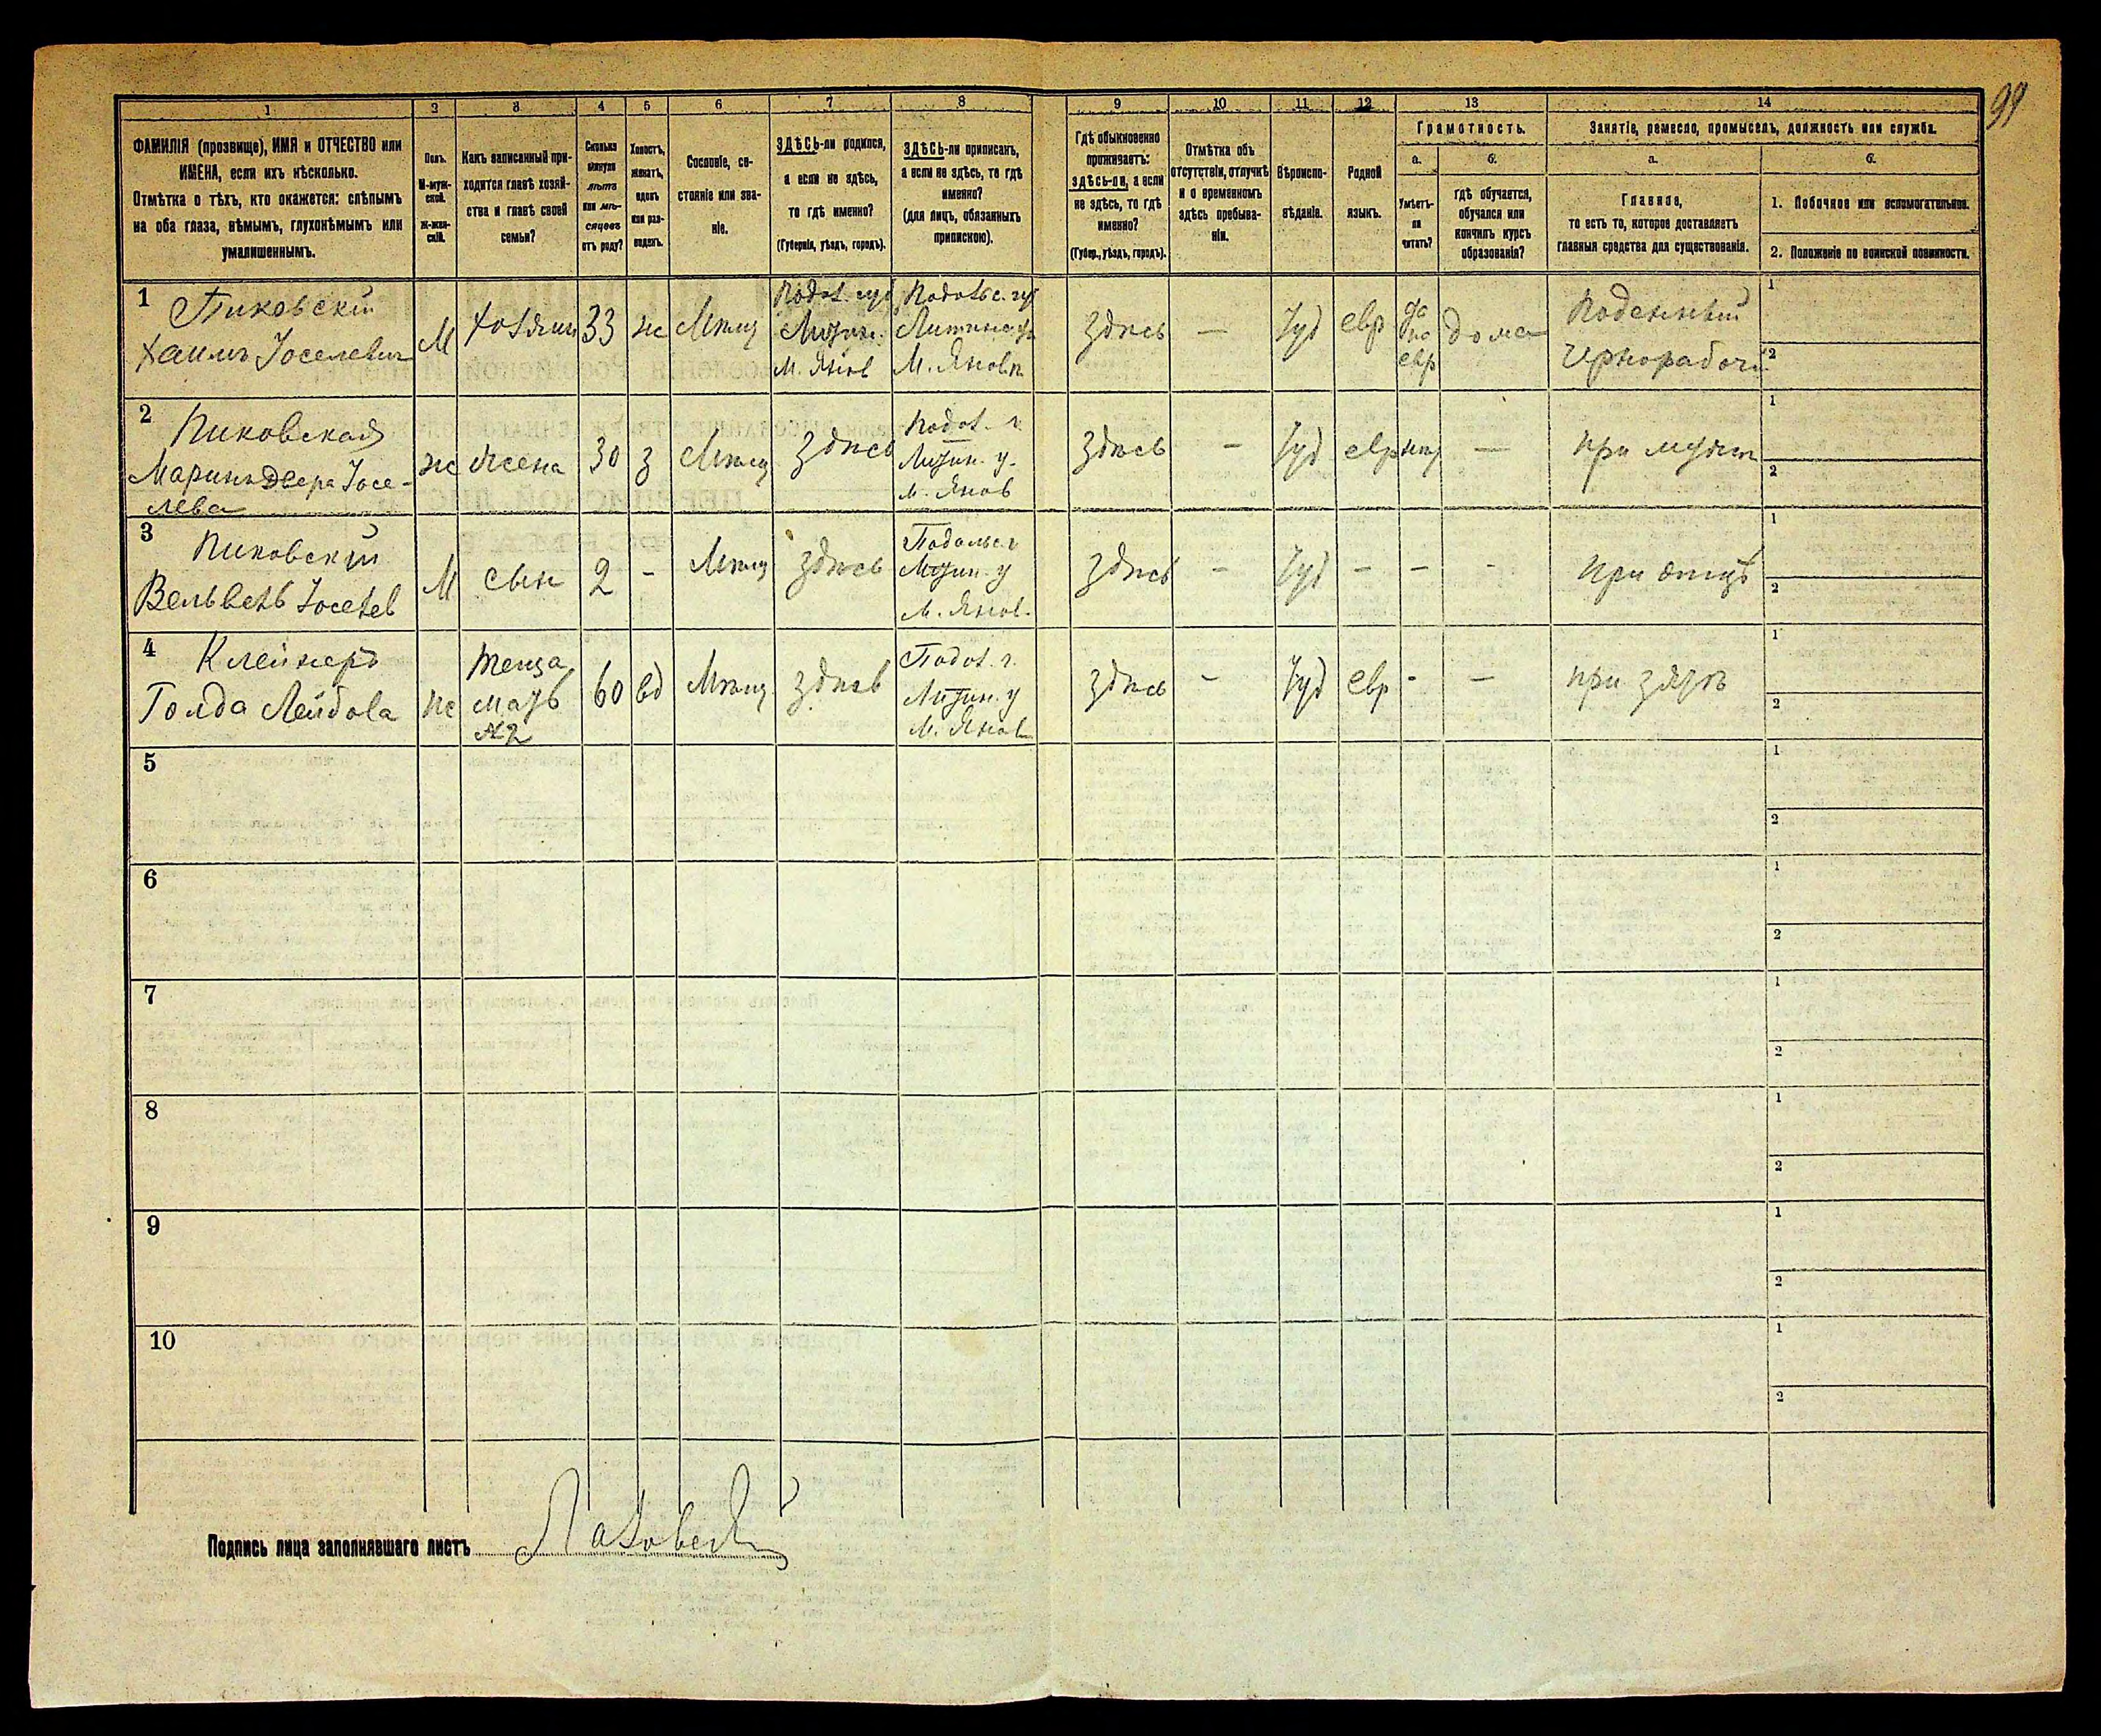 99
1 2 3 4 5 6 7 8 9 10 11 12 13 14
ФАМИЛІЯ (прозвище), ИМЯ и ОТЧЕСТВО или
ИМЕНА, если ихъ нѣсколько.
Отмѣтка о тѣхъ, кто окажется: слѣпымъ
на оба глаза, нѣмымъ, глухонѣмымъ или
умалишеннымъ.
Полъ.
М-муж-
ской.
Ж-жен-
скій.
Какъ записанный при-
ходится главѣ хозяй-
ства и главѣ своей
семьи?
Сколько
минуло
лѣтъ
или мѣ-
сяцевъ
отъ роду?
Холостъ,
женатъ,
вдовъ
или раз-
веденъ.
Сословіе, со-
стояніе или зва-
ніе.
ЗДѢСЬ-ли родился,
а если не здѣсь,
то гдѣ именно?
(Губернія, уѣздъ, городъ).
ЗДѢСЬ-ли приписанъ,
а если не здѣсь, то гдѣ
именно?
(для лицъ, обязанныхъ
припискою).
Гдѣ обыкновенно
проживаетъ:
здѣсь-ли, а если
не здѣсь, то гдѣ
именно?
(Губер., уѣздъ, городъ).
Отмѣтка объ
отсутствіи, отлучкѣ
и о временномъ
здѣсь пребыва-
ніи.
Вѣроиспо-
вѣданіе.
Родной
языкъ.
Грамотность.
а. б.
Умѣетъ-
ли
читать?
гдѣ обучается,
обучался или
кончилъ курсъ
образованія?
Занятіе, ремесло, промыселъ, должность или служба.
а. б.
Главное,
то есть то, которое доставляетъ
главныя средства для существованія.
1. Побочное или вспомогательное.
2. Положеніе по воинской повинности.
1 Пиковскій
Хаимъ Іоселевичъ
М
хозяин
33
ж
Мѣщ
Подол. губ
Литин.
м. Янов
Подольс. гу
Литинс. у
М. Янов
здѣсь
—
Іуд
евр
да
по
евр
дома
Поденный
чернорабочі
1
2
2 Пиковская
Двера Іосе-
лева
ж
жена
30
з
Мѣщ
здѣсь
Подол. г.
Литин. у.
м. Янов
здѣсь
—
Іуд
евр
нѣт
—
при мужѣ
1
2
3 Пиковскій
Вельвель Іоселев
М
сын
2
-
Мѣщ
здѣсь
Подольс. г
Литин. у
м. Янов.
здѣсь
-
Іуд
-
-
-
при отцѣ
1
2
4 Клейнеръ
Голда Лейбова
ж
теща
мать
№2
60
вд
Мѣщ.
здѣсь
Подол. г.
Литин. у
М. Янов
здѣсь
-
Іуд
евр
-
—
при зятѣ
1
2
5
1
2
6
1
2
7
1
2
8
1
2
9
1
2
10
1
2
Подпись лица заполнявшаго листъ